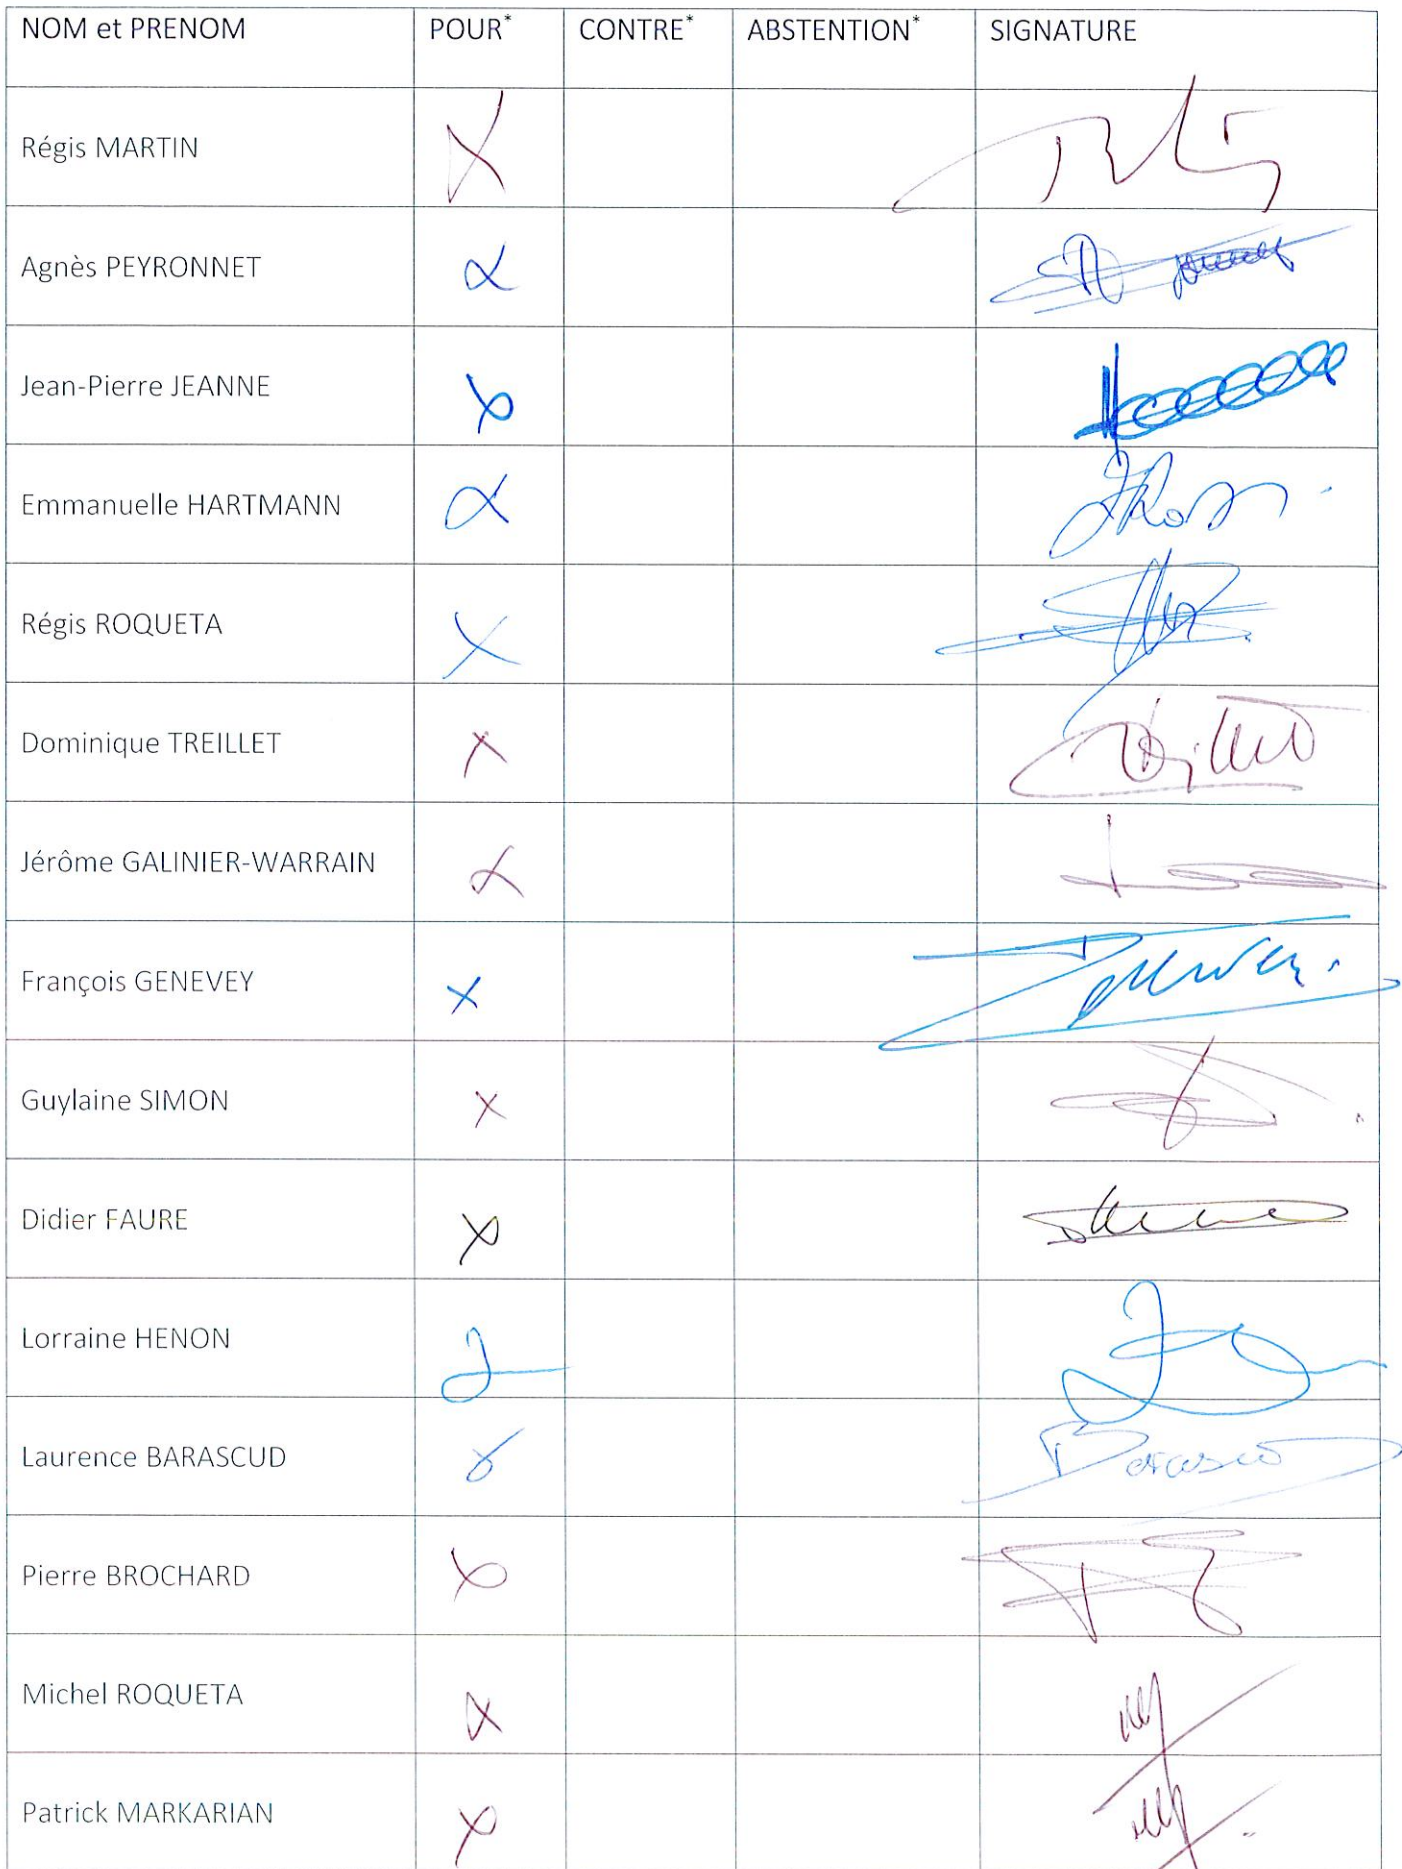 NOM et PRENOM POUR* CONTRE* ABSTENTION* SIGNATURE
Régis MARTIN X
Agnès PEYRONNET X
Jean-Pierre JEANNE X
Emmanuelle HARTMANN X
Régis ROQUETA X
Dominique TREILLET X
Jérôme GALINIER-WARRAIN X
François GENEVEY X
Guylaine SIMON X
Didier FAURE X
Lorraine HENON
Laurence BARASCUD X
Pierre BROCHARD X
Michel ROQUETA X
Patrick MARKARIAN X